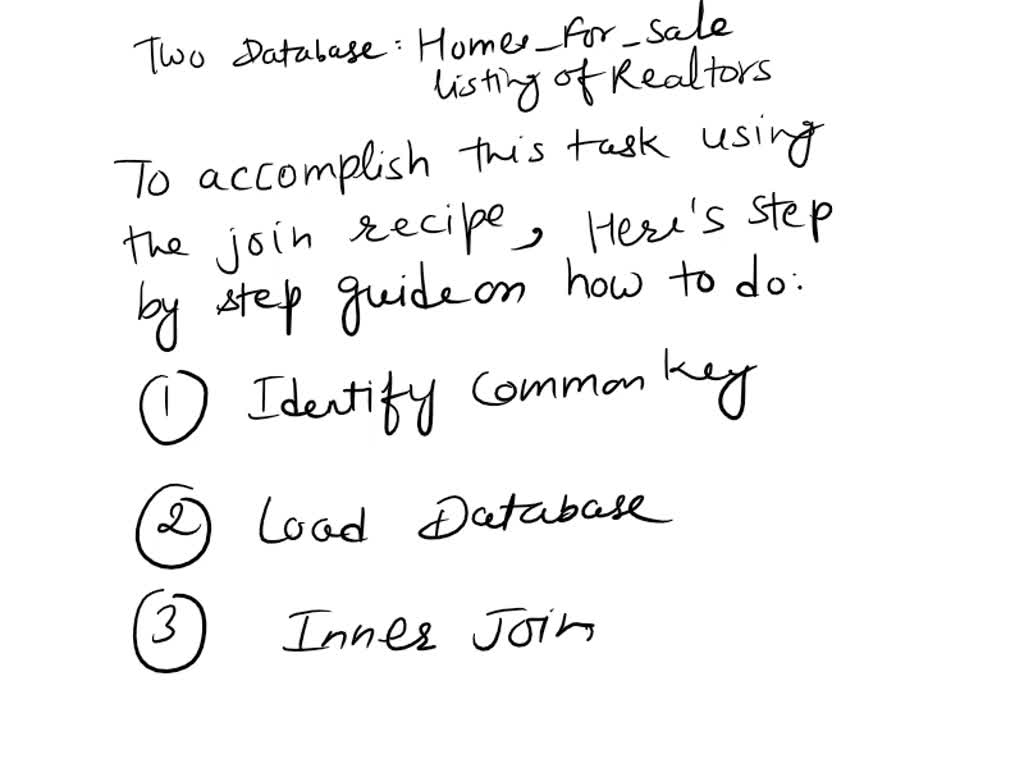 Two Database: Homes_For_sale
listing of Realtors
To accomplish this task using
the join recipe, Here's step
by step guide on how to do:
1 Identify Common key
2 Load Database
3 Inner Join